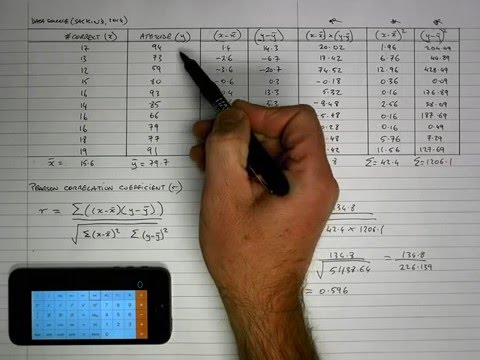 DATA SOURCE
# CORRECT (x) ATTITUDE (y) (x-x̄) (y-ȳ) (x-x̄)×(y-ȳ) (x-x̄)² (y-ȳ)²
17 94 1.4 14.3 20.02 1.96 204.49
13 73 -2.6 -6.7 17.42 6.76 44.89
12 59 -3.6 -20.7 74.52 12.96 428.49
15 80 -0.6 0.3 -0.18 0.36 0.09
16 93 0.4 13.3 5.32 0.16
14 85 5.3 -8.48 2.56
16 66 0.16
16 79 0.16 0.49
18 77 5.76 7.29
19 91 11.56 127.69
x̄ = 15.6 ȳ = 79.7 Σ = 42.4 Σ = 1206.1
PEARSON CORRELATION COEFFICIENT (r)
r = Σ((x-x̄)(y-ȳ)) / √Σ(x-x̄)² Σ(y-ȳ)²
134.8 / 42.4 × 1206.1
134.8 / √51138.64 = 134.8 / 226.139
= 0.596